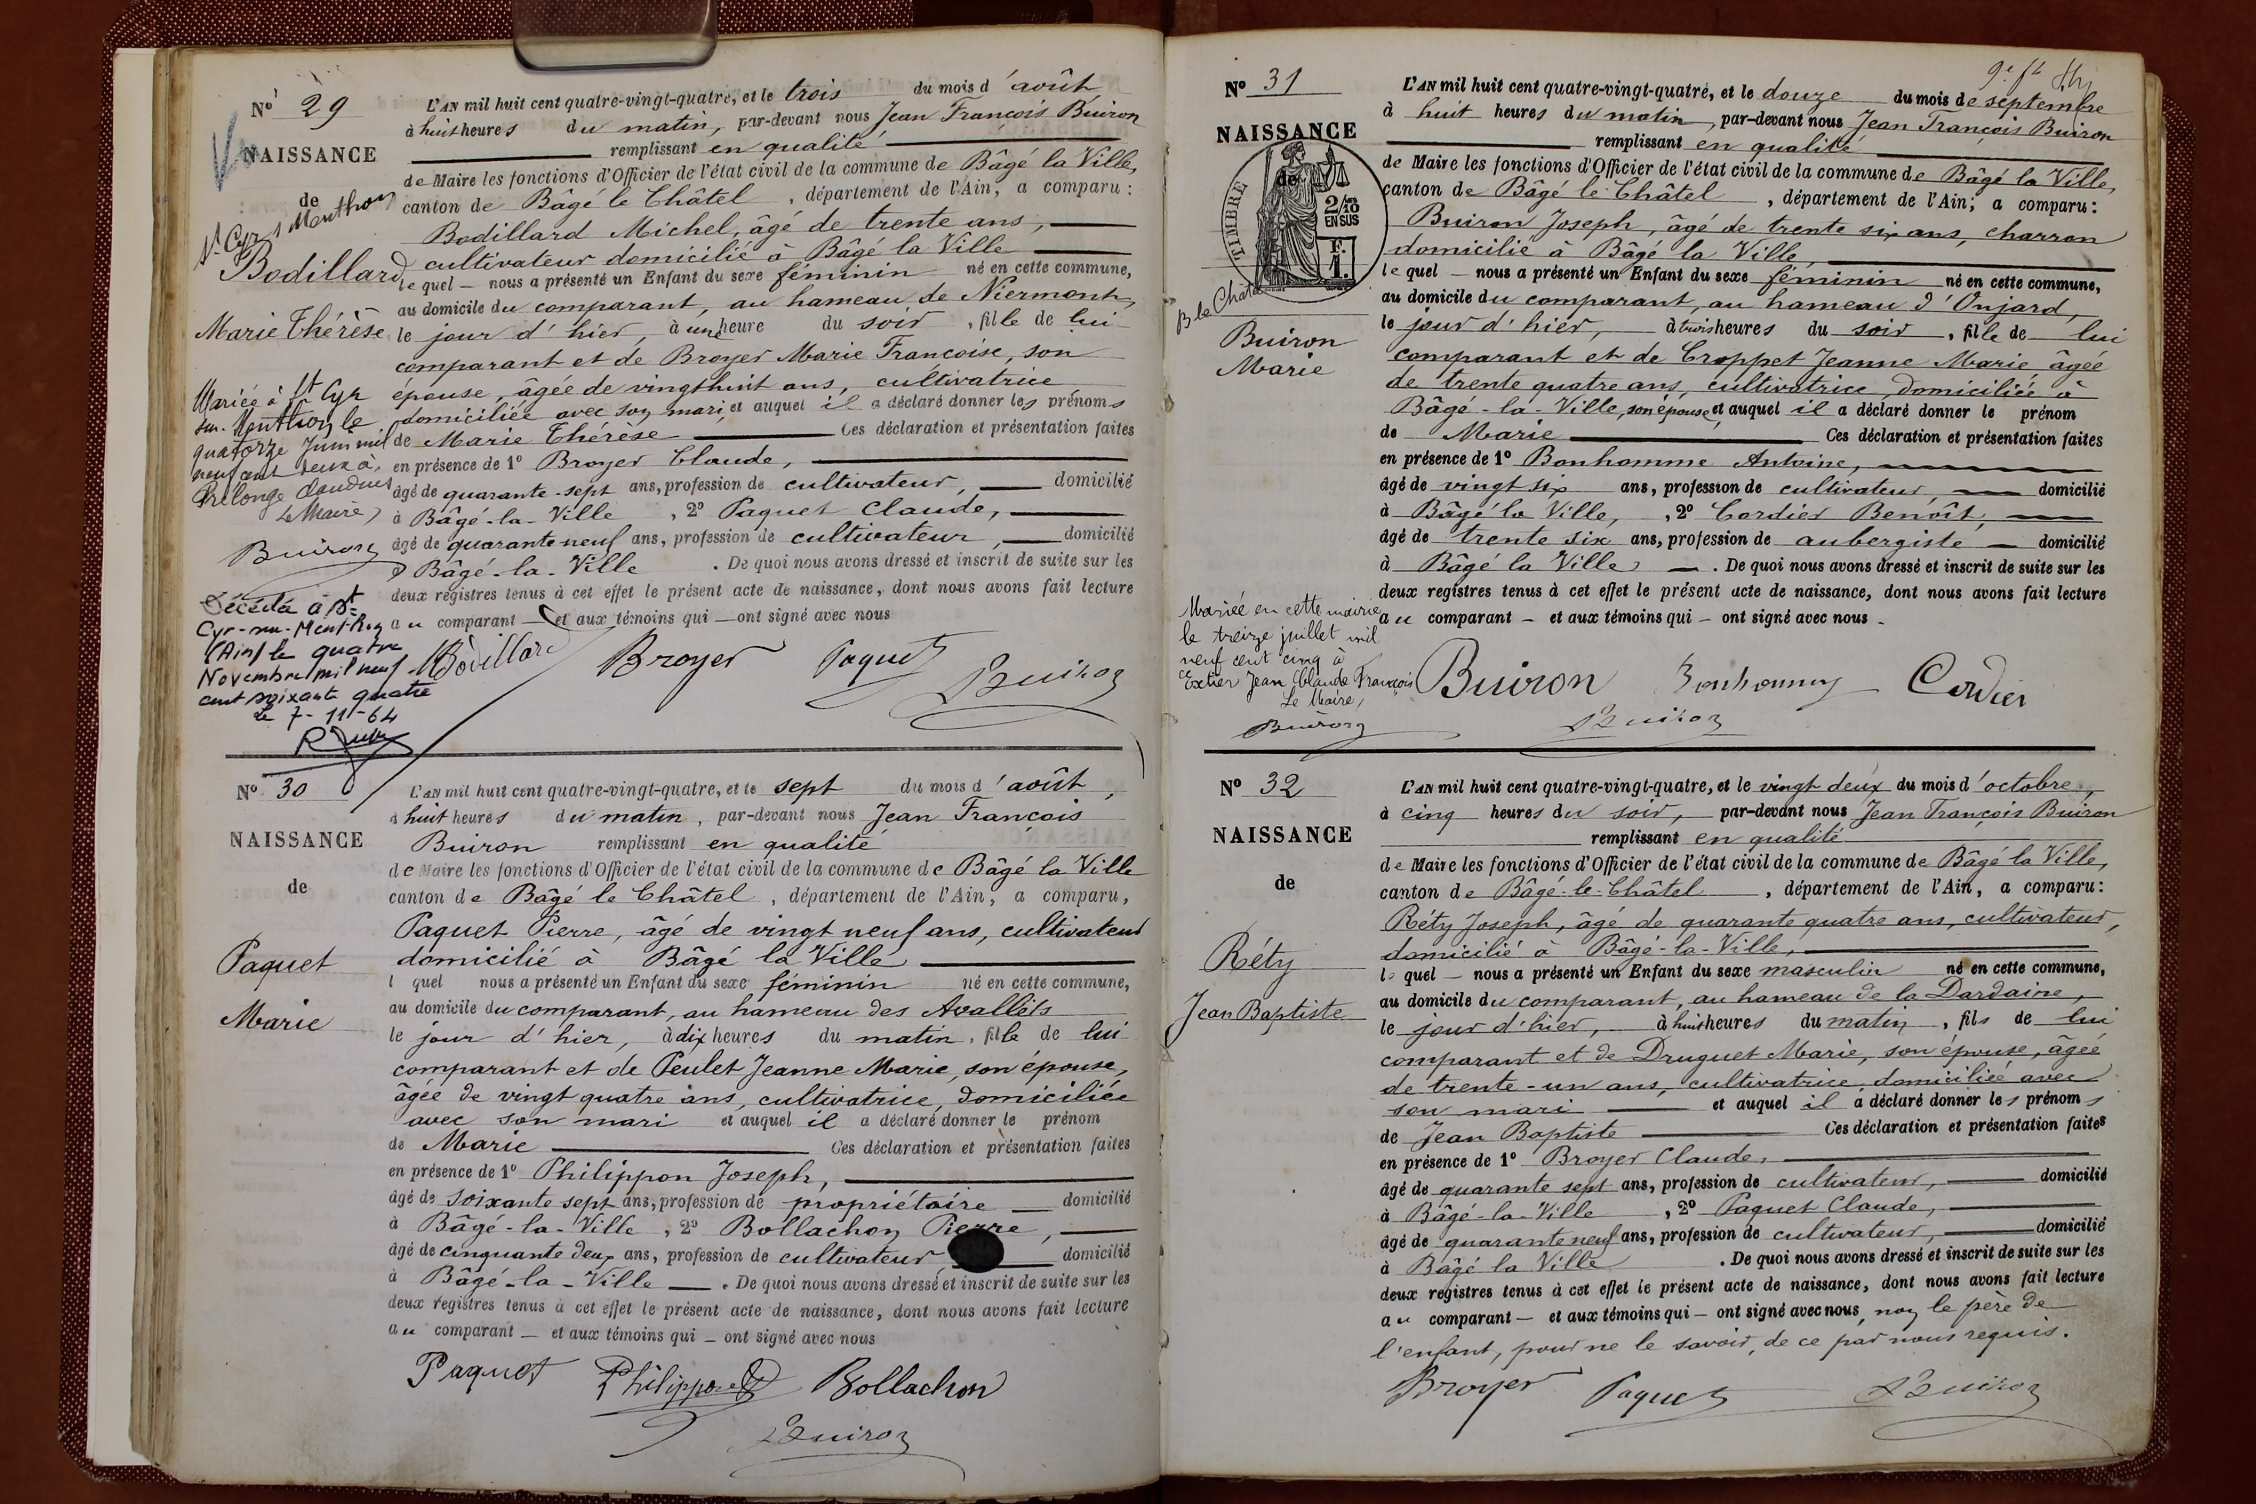 No 29
NAISSANCE
de
St Cyr s Menthon
Bodillard
Marie Thérèse
Mariée à St Cyr
sur-Menthon le
quatorze Juin mil
neuf cent deux à
Prélonge Claudius
Le Maire,
Buiron
Décédée à St
Cyr-sur-Menthon
(Ain) le quatre
Novembre mil neuf
cent soixante quatre
Le 7-11-64
L'AN mil huit cent quatre-vingt-quatre, et le trois du mois d'août
à huit heures du matin, par-devant nous Jean François Buiron
remplissant en qualité
de Maire les fonctions d'Officier de l'état civil de la commune de Bâgé la Ville,
canton de Bâgé le Châtel, département de l'Ain, a comparu :
Bodillard Michel, âgé de trente ans,
cultivateur domicilié à Bâgé la Ville
lequel — nous a présenté un Enfant du sexe féminin né en cette commune,
au domicile du comparant, au hameau de Niermont,
le jour d'hier, à une heure du soir, fille de lui
comparant et de Broyer Marie Françoise, son
épouse, âgée de vingt huit ans, cultivatrice
domiciliée avec son mari, et auquel il a déclaré donner les prénoms
de Marie Thérèse Ces déclaration et présentation faites
en présence de 1o Broyer Claude,
âgé de quarante-sept ans, profession de cultivateur, domicilié
à Bâgé-la-Ville, 2o Paquet Claude,
âgé de quarante neuf ans, profession de cultivateur, domicilié
à Bâgé-la-Ville. De quoi nous avons dressé et inscrit de suite sur les
deux registres tenus à cet effet le présent acte de naissance, dont nous avons fait lecture
au comparant — et aux témoins qui — ont signé avec nous
Bodillard Broyer Paquet
Buiron
No 30
NAISSANCE
de
Paquet
Marie
L'AN mil huit cent quatre-vingt-quatre, et le sept du mois d'août,
à huit heures du matin, par-devant nous Jean François
Buiron remplissant en qualité
de Maire les fonctions d'Officier de l'état civil de la commune de Bâgé la Ville
canton de Bâgé le Châtel, département de l'Ain, a comparu,
Paquet Pierre, âgé de vingt neuf ans, cultivateur
domicilié à Bâgé la Ville
l quel nous a présenté un Enfant du sexe féminin né en cette commune,
au domicile du comparant, au hameau des Avallets
le jour d'hier, à dix heures du matin, fille de lui
comparant et de Peulet Jeanne Marie, son épouse,
âgée de vingt quatre ans, cultivatrice, domiciliée
avec son mari et auquel il a déclaré donner le prénom
de Marie Ces déclaration et présentation faites
en présence de 1o Philippon Joseph,
âgé de soixante sept ans, profession de propriétaire domicilié
à Bâgé-la-Ville, 2o Bollachon Pierre,
âgé de cinquante deux ans, profession de cultivateur domicilié
à Bâgé-la-Ville. De quoi nous avons dressé et inscrit de suite sur les
deux registres tenus à cet effet le présent acte de naissance, dont nous avons fait lecture
au comparant — et aux témoins qui — ont signé avec nous
Paquet Philippon Bollachon
Buiron
No 31
NAISSANCE
de
TIMBRE
2/10
EN SUS
F.
1.
B le Châtel
Buiron
Marie
Mariée en cette mairie
le treize juillet mil
neuf cent cinq à
Extier Jean Claude François
Le Maire,
Buiron
L'AN mil huit cent quatre-vingt-quatre, et le douze du mois de septembre
à huit heures du matin, par-devant nous Jean François Buiron
remplissant en qualité
de Maire les fonctions d'Officier de l'état civil de la commune de Bâgé la Ville,
canton de Bâgé le Châtel, département de l'Ain, a comparu :
Buiron Joseph, âgé de trente six ans, charron
domicilié à Bâgé la Ville,
lequel — nous a présenté un Enfant du sexe féminin né en cette commune,
au domicile du comparant, au hameau d'Onjard,
le jour d'hier, à trois heures du soir, fille de lui
comparant et de Croppet Jeanne Marie âgée
de trente quatre ans, cultivatrice, domiciliée à
Bâgé-la-Ville, son épouse, et auquel il a déclaré donner le prénom
de Marie Ces déclaration et présentation faites
en présence de 1o Bonhomme Antoine,
âgé de vingt six ans, profession de cultivateur, domicilié
à Bâgé la Ville, 2o Cordier Benoît,
âgé de trente six ans, profession de aubergiste domicilié
à Bâgé la Ville. De quoi nous avons dressé et inscrit de suite sur les
deux registres tenus à cet effet le présent acte de naissance, dont nous avons fait lecture
au comparant — et aux témoins qui — ont signé avec nous.
Buiron Bonhomme Cordier
Buiron
No 32
NAISSANCE
de
Réty
Jean Baptiste
L'AN mil huit cent quatre-vingt-quatre, et le vingt deux du mois d'octobre,
à cinq heures du soir, par-devant nous Jean François Buiron
remplissant en qualité
de Maire les fonctions d'Officier de l'état civil de la commune de Bâgé la Ville,
canton de Bâgé-le-Châtel, département de l'Ain, a comparu :
Réty Joseph, âgé de quarante quatre ans, cultivateur,
domicilié à Bâgé-la-Ville,
lequel — nous a présenté un Enfant du sexe masculin né en cette commune,
au domicile du comparant, au hameau de la Dardaine,
le jour d'hier, à huit heures du matin, fils de lui
comparant et de Druguet Marie, son épouse, âgée
de trente-un ans, cultivatrice, domiciliée avec
son mari et auquel il a déclaré donner les prénoms
de Jean Baptiste Ces déclaration et présentation faites
en présence de 1o Broyer Claude,
âgé de quarante sept ans, profession de cultivateur, domicilié
à Bâgé-la-Ville, 2o Paquet Claude,
âgé de quarante neuf ans, profession de cultivateur, domicilié
à Bâgé la Ville. De quoi nous avons dressé et inscrit de suite sur les
deux registres tenus à cet effet le présent acte de naissance, dont nous avons fait lecture
au comparant — et aux témoins qui — ont signé avec nous, non le père de
l'enfant, pour ne le savoir, de ce par nous requis.
Broyer Paquet Buiron